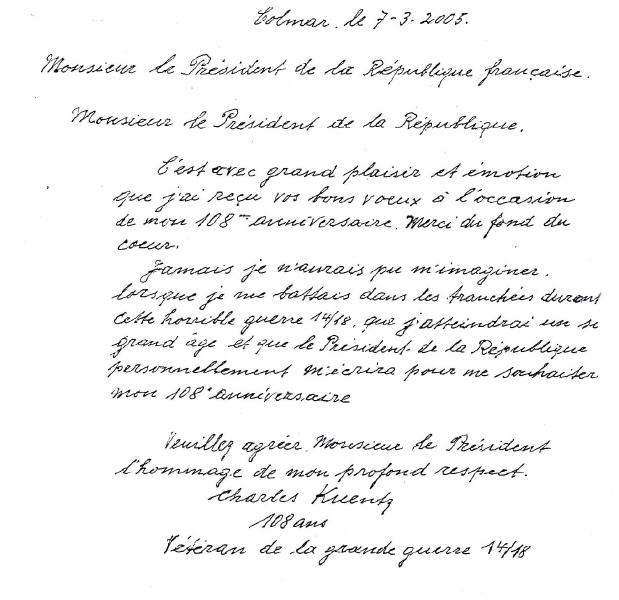 Colmar, le 7-3-2005.
Monsieur le Président de la République française.
Monsieur le Président de la République,
C'est avec grand plaisir et émotion
que j'ai reçu vos bons voeux à l'occasion
de mon 108me anniversaire. Merci du fond du
coeur.
Jamais je n'aurais pu m'imaginer,
lorsque je me battais dans les tranchées durant
cette horrible guerre 14/18, que j'atteindrai un si
grand âge et que le Président de la République
personnellement m'écrira pour me souhaiter
mon 108e anniversaire
Veuillez agréer, Monsieur le Président
l'hommage de mon profond respect.
Charles Kuentz
108 ans
Vétéran de la grande guerre 14/18